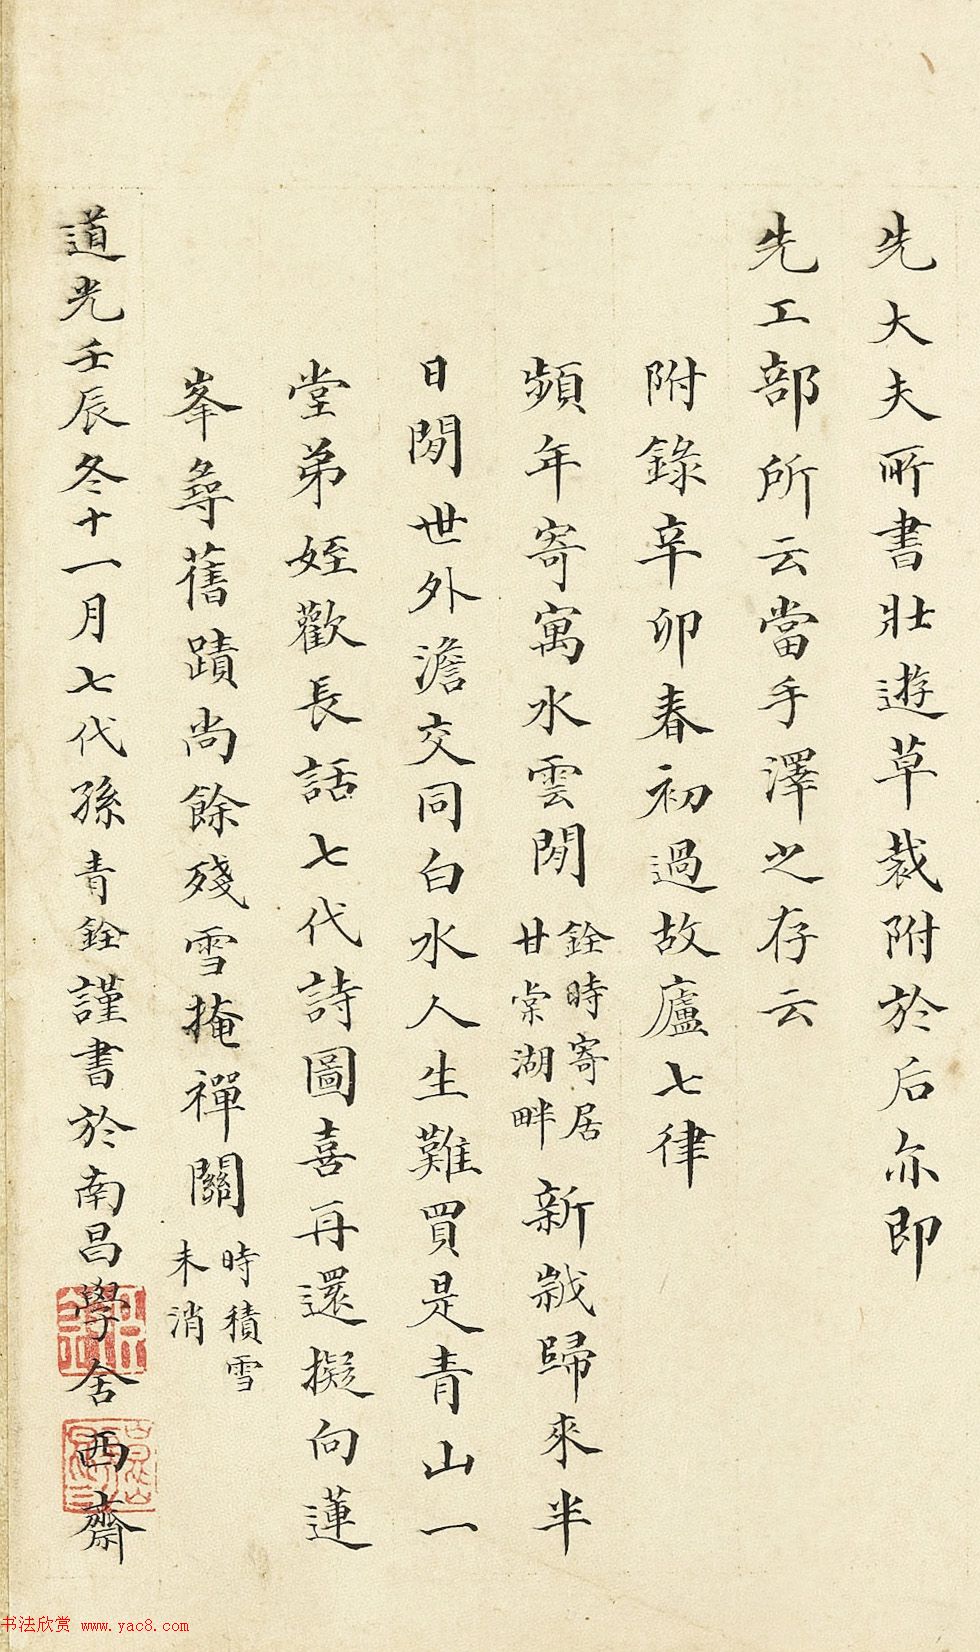 先大夫所書壯遊草裁附於后亦即
先工部所云當手澤之存云
附錄辛卯春初過故廬七律
頻年寄寓水雲閒
銓時寄居
甘棠湖畔
新歲歸來半
日閒世外澹交同白水人生難買是青山一
堂弟姪歡長話七代詩圖喜再還擬向蓮
峯尋舊蹟尚餘殘雪掩禪關
時積雪
未消
道光壬辰冬十一月七代孫青銓謹書於南昌學舍西齋
书法欣赏 www.yac8.com